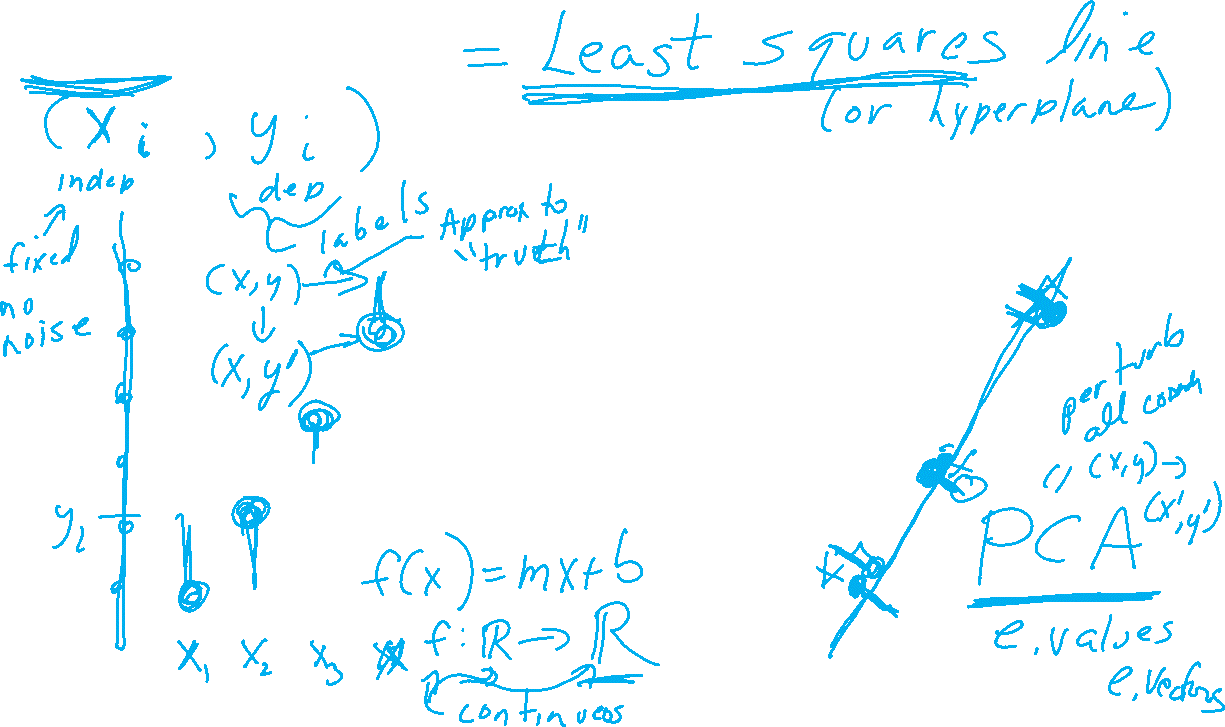 = Least squares line
(or hyperplane)
(x_i, y_i)
indep
dep
fixed
no
noise
labels
Approx to
"truth"
(x,y) →
↓
(x,y')
y_2
x_1 x_2 x_3
f(x)=mx+b
f: ℝ → ℝ
continuous
perturb
all
(x,y) →
(x',y')
PCA
e.values
e.vectors